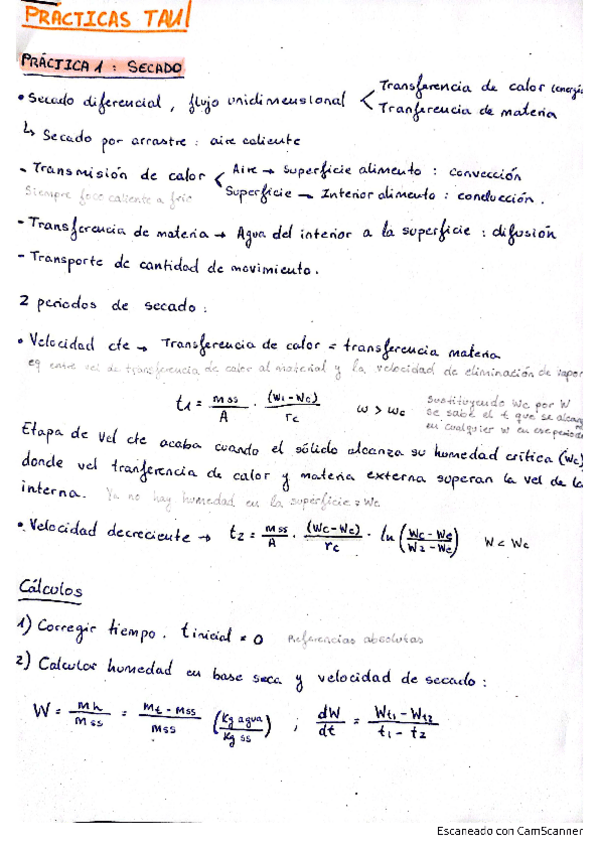 PRÁCTICAS TAUI
PRÁCTICA 1: SECADO
• Secado diferencial, flujo unidimensional < Transferencia de calor (energía
Tranferencia de materia
↳ Secado por arrastre: aire caliente
- Transmisión de calor < Aire → Superficie alimento: convección
Siempre foco caliente a frío
Superficie → Interior alimento: conducción.
- Transferencia de materia → Agua del interior a la superficie: difusión
- Transporte de cantidad de movimiento.
2 periodos de secado:
• Velocidad cte → Transferencia de calor = transferencia materia
eq entre vel de transferencia de calor al material y la velocidad de eliminación de vapor
t1 = mss/A · (W1 - Wc)/rc    W > Wc
Sustituyendo Wc por W
se sabe el t que se alcanz
en cualquier W en ese periodo
Etapa de vel cte acaba cuando el sólido alcanza su humedad crítica (Wc)
donde vel tranferencia de calor y materia externa superan la vel de la
interna. Ya no hay humedad en la superficie = Wc
• Velocidad decreciente → t2 = mss/A · (Wc - We)/rc · ln ((Wc - We)/(W2 - We))    W < Wc
Cálculos
1) Corregir tiempo. t inicial = 0 Referencias absolutas
2) Calcular humedad en base seca y velocidad de secado:
W = mh/mss = (mt - mss)/mss (Kg agua/Kg ss) ; dW/dt = (Wt1 - Wt2)/(t1 - t2)
Escaneado con CamScanner